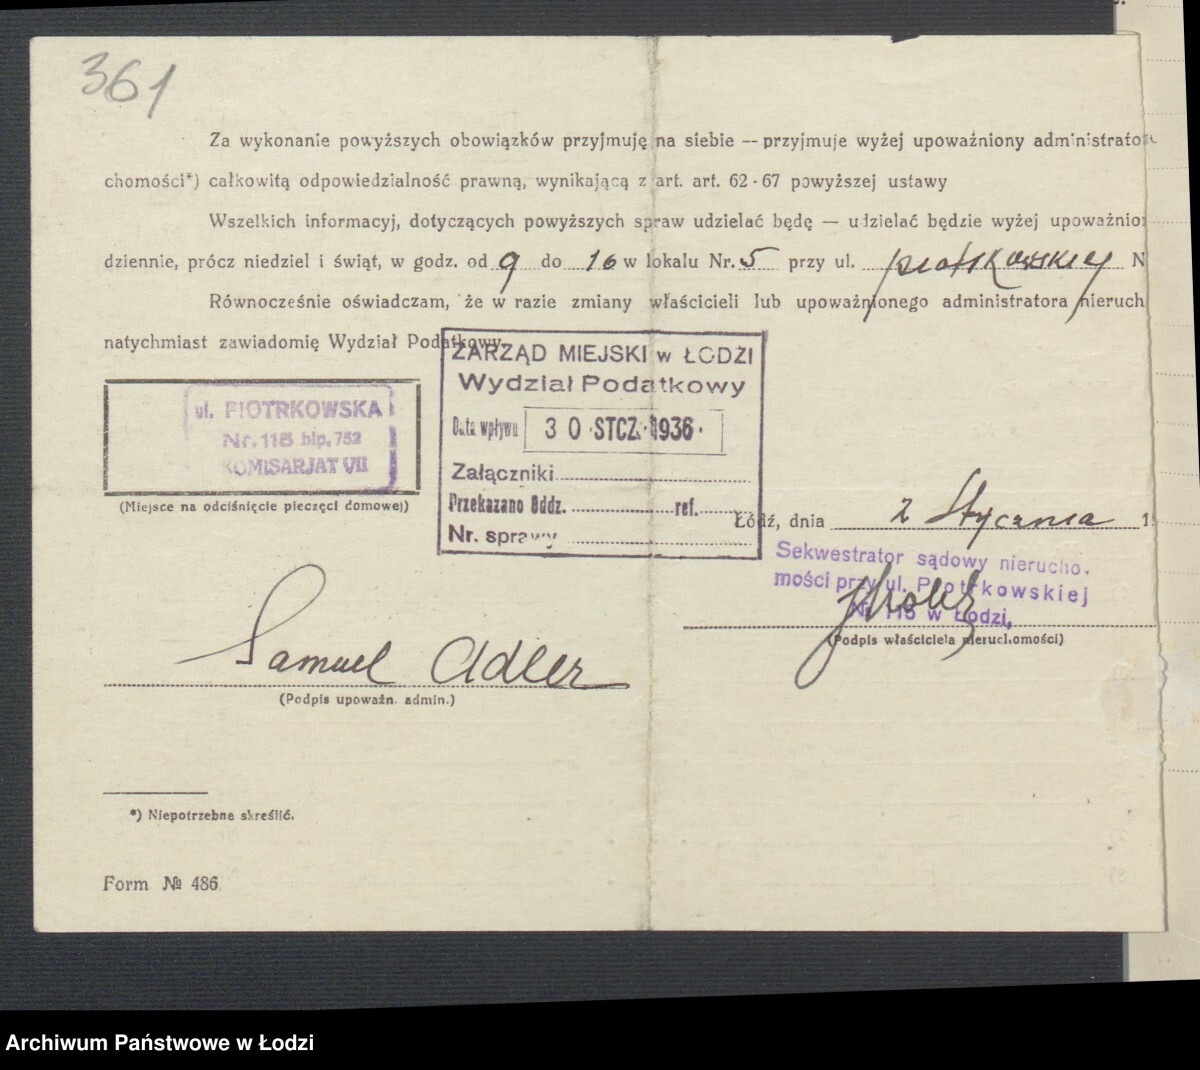 361
Za wykonanie powyższych obowiązków przyjmuję na siebie — przyjmuje wyżej upoważniony administrato
chomości*) całkowitą odpowiedzialność prawną, wynikającą z art. art. 62-67 powyższej ustawy
Wszelkich informacyj, dotyczących powyższych spraw udzielać będę — udzielać będzie wyżej upoważnio
dziennie, prócz niedziel i świąt, w godz. od 9 do 16 w lokalu Nr. 5 przy ul. Piotrkowskiej N
Równocześnie oświadczam, że w razie zmiany właścicieli lub upoważnionego administratora nieruch
natychmiast zawiadomię Wydział Podatkowy.
ZARZĄD MIEJSKI w ŁODZI
Wydział Podatkowy
Data wpływu 30 STCZ. 1936
Załączniki
Przekazano Oddz. ref.
Nr. sprawy
ul. PIOTRKOWSKA
Nr. 115 hip. 752
KOMISARJAT VII
(Miejsce na odciśnięcie pieczęci domowej)
Łódź, dnia 2 Stycznia 1
Sekwestrator sądowy nierucho.
mości przy ul. Piotrkowskiej
Nr 115 w Łodzi,
(Podpis właściciela nieruchomości)
Samuel Adler
(Podpis upoważn. admin.)
*) Niepotrzebne skreślić.
Form № 486.
Archiwum Państwowe w Łodzi